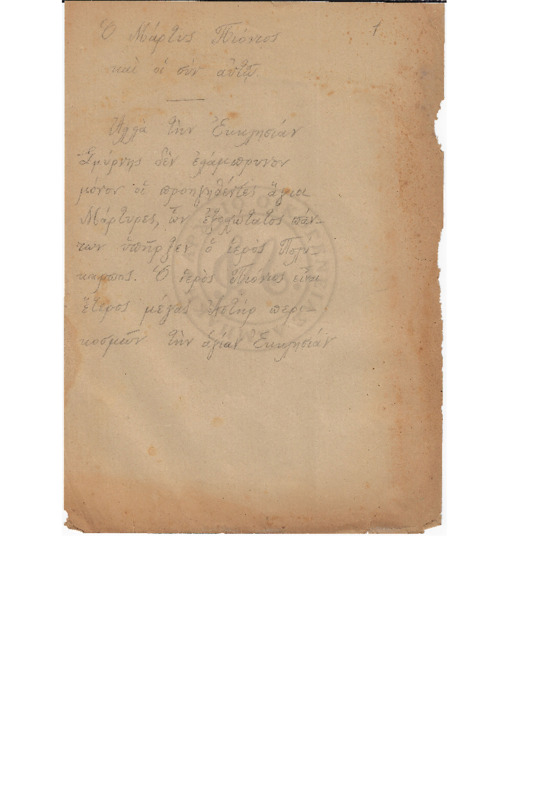 Ὁ Μάρτυς Πιόνιος 1
καὶ οἱ σὺν αὐτῷ
Ἀλλὰ τὴν Ἐκκλησίαν
Σμύρνης δὲν ἐλάμπρυνον
μόνον οἱ προηγηθέντες ἅγιοι
Μάρτυρες, ὧν ἐξοχώτατος πάν-
των ὑπῆρξεν ὁ ἱερὸς Πολύ-
καρπος. Ὁ ἱερὸς Πιόνιος εἶναι
ἕτερος μέγας ἀστὴρ περι-
κοσμῶν τὴν ἁγίαν Ἐκκλησίαν